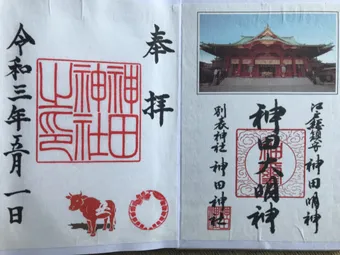 奉拝
神田神社之印
令和三年五月一日
江戸総鎮守 神田明神
神田大明神
別表神社 神田神社